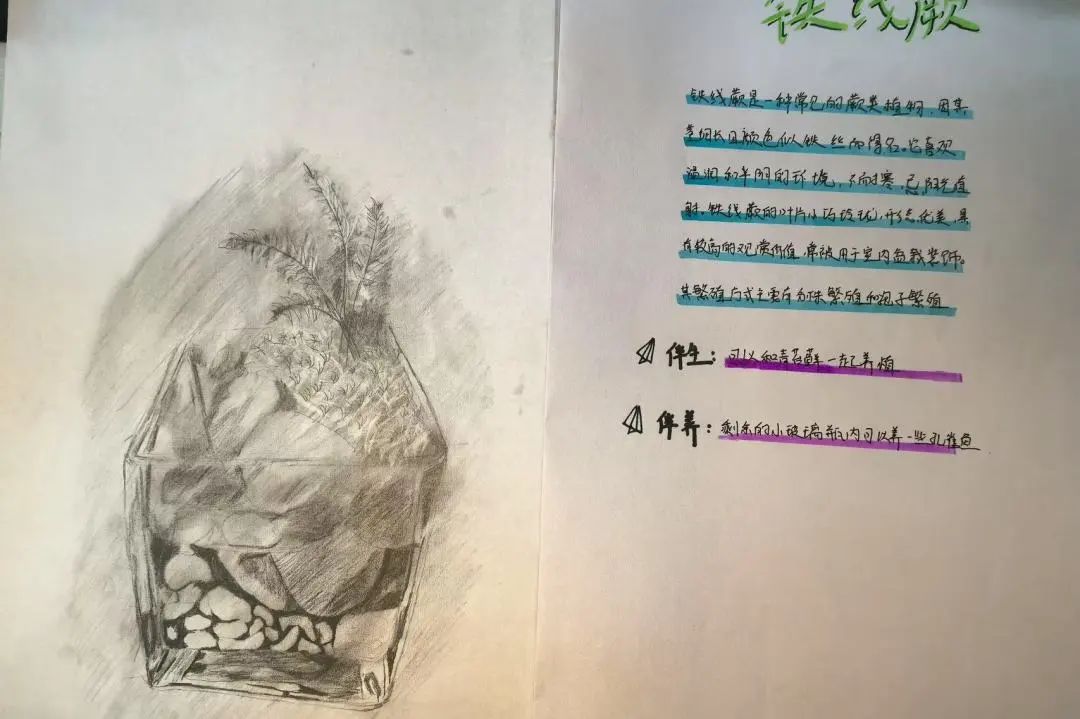 铁线蕨
铁线蕨是一种常见的蕨类植物，因其
茎细长且颜色似铁丝而得名。它喜观
温润和半阴的环境，不耐寒，忌阳光直
射。铁线蕨的叶片小巧玲珑，形态优美，具
有较高的观赏价值，常被用于室内盆栽装饰。
其繁殖方式主要有分株繁殖和孢子繁殖
伴生：可以和青苔藓一起养殖
伴养：剩余的小玻璃瓶内可以养一些孔雀鱼